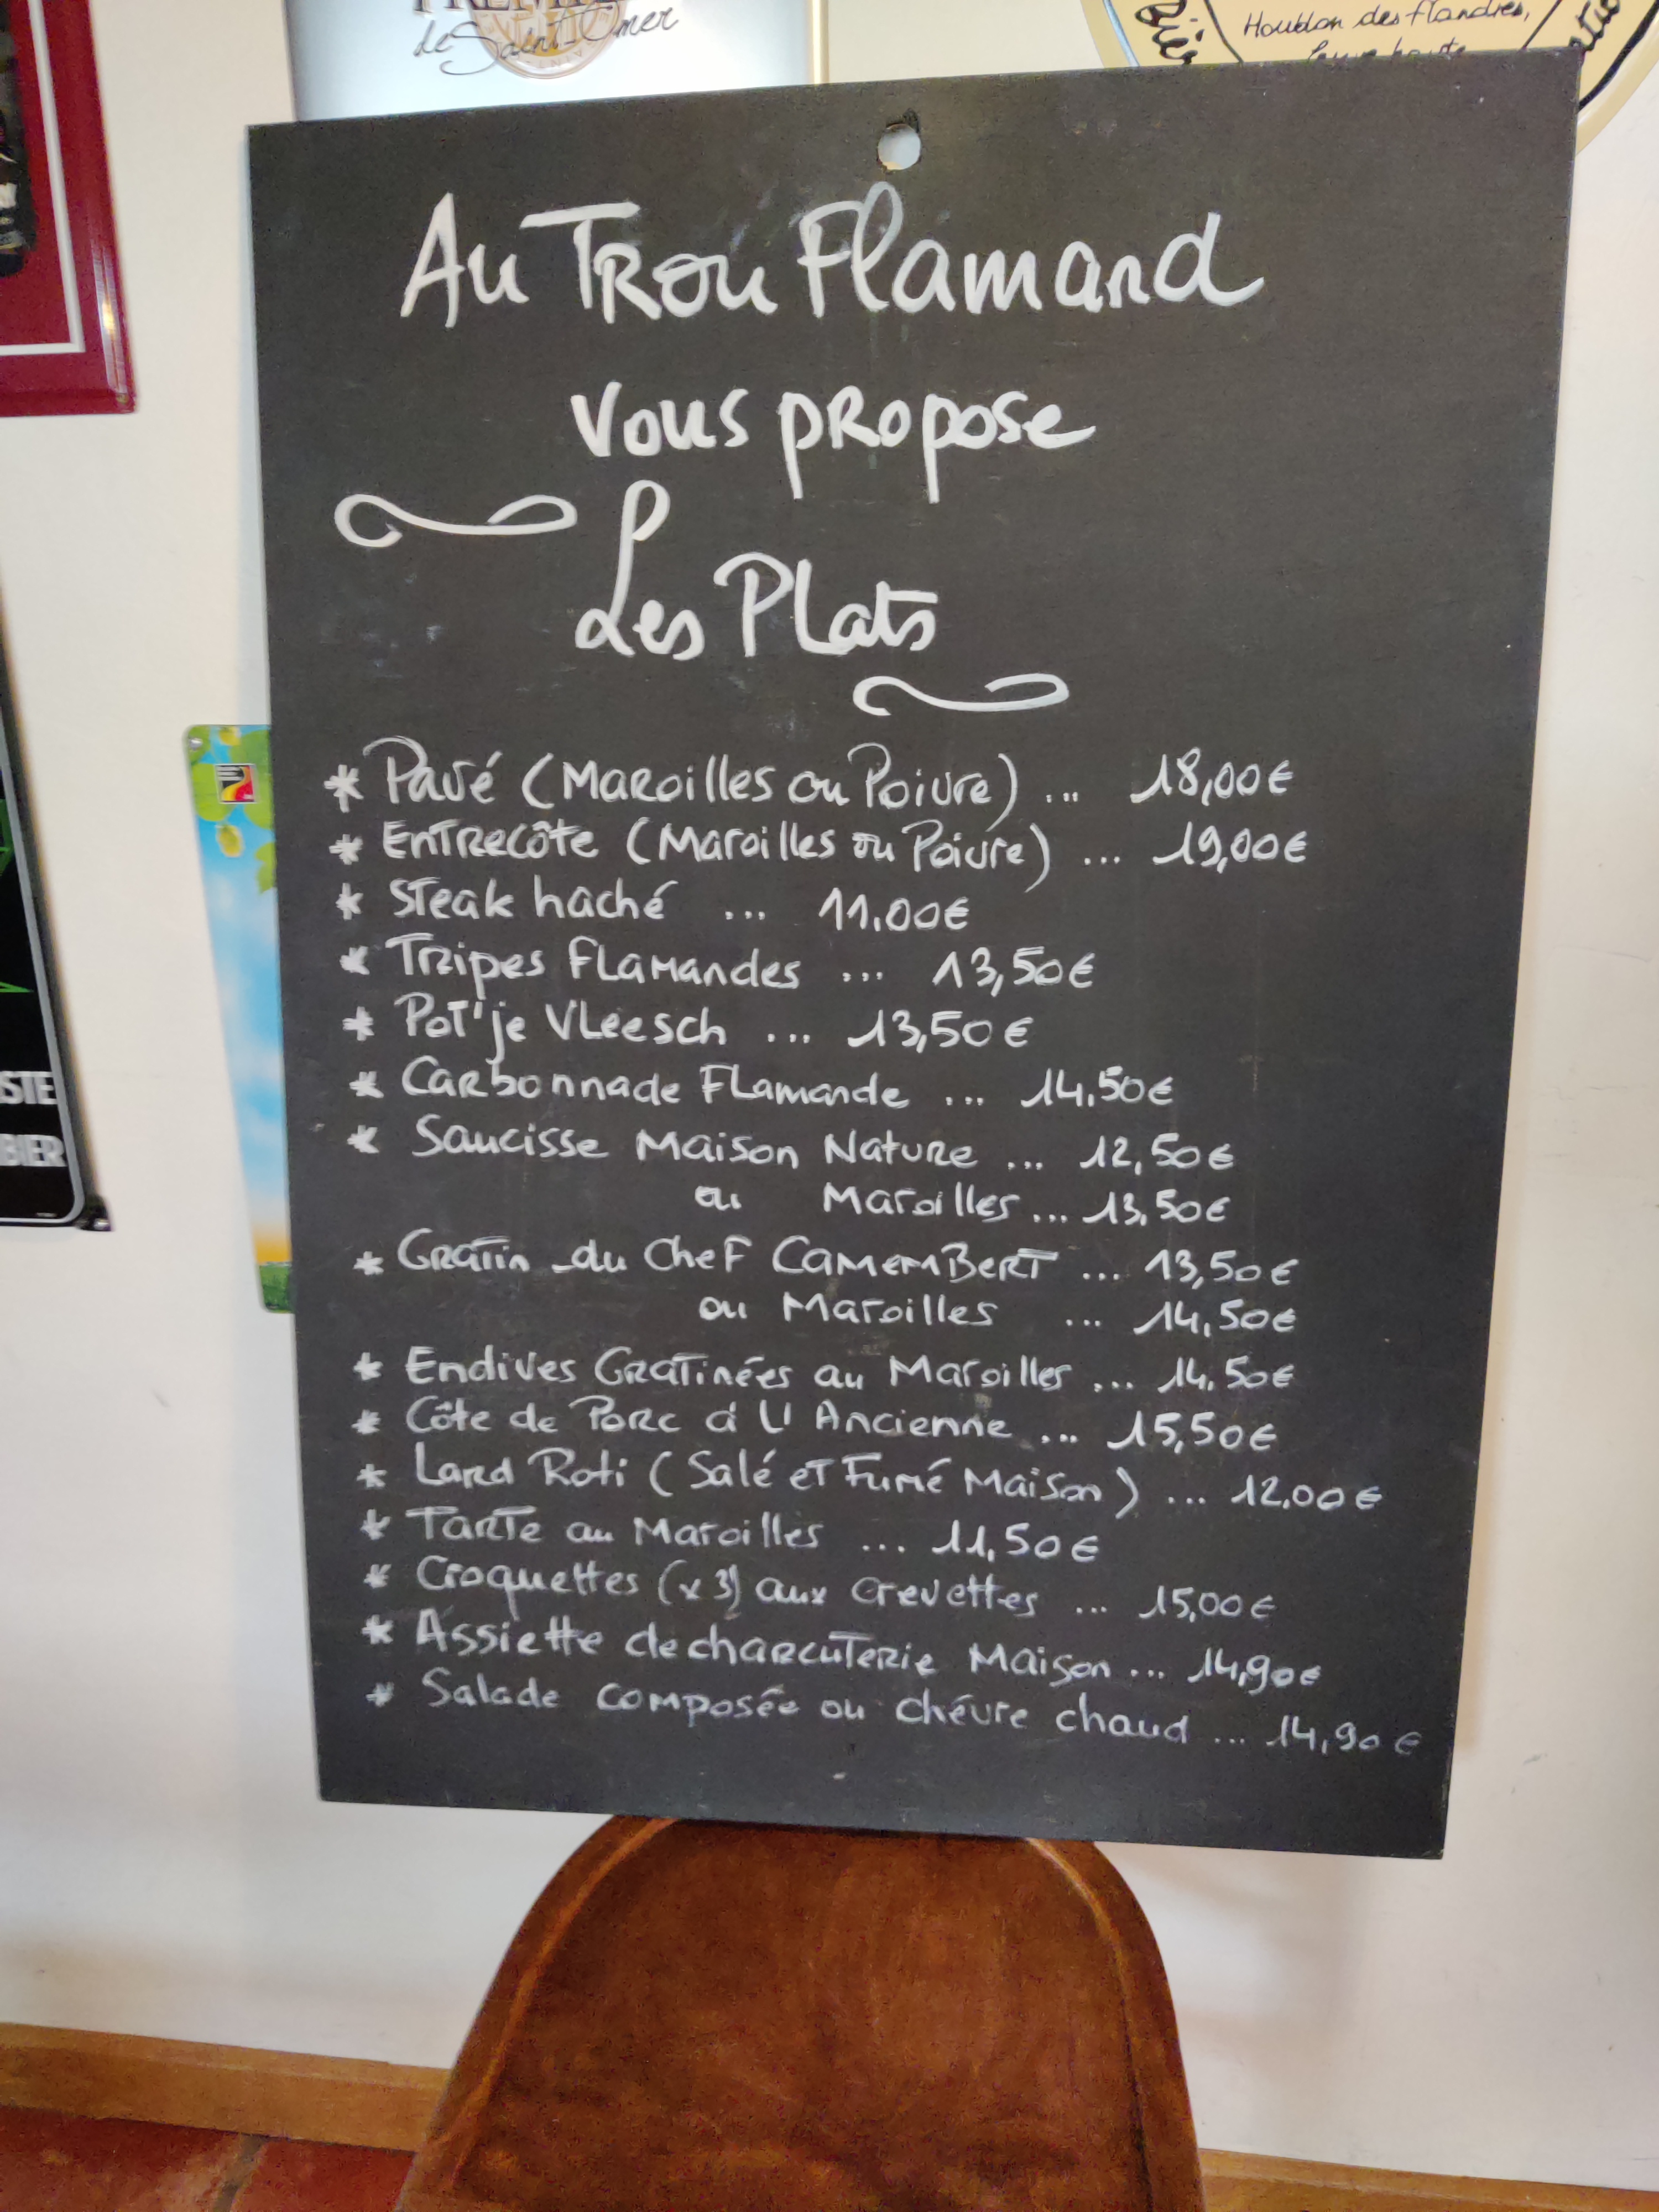 de Saint-Omer
Houblon des Flandres,
Au Trou Flamand
vous propose
Les Plats
* Pavé (Maroilles ou Poivre) ... 18,00€
* Entrecôte (Maroilles ou Poivre) ... 19,00€
* Steak haché ... 11.00€
* Tripes Flamandes ... 13,50€
* Pot'je Vleesch ... 13,50€
* Carbonnade Flamande ... 14,50€
* Saucisse Maison Nature ... 12,50€
ou Maroilles ... 13,50€
* Gratin du Chef Camembert ... 13,50€
ou Maroilles ... 14,50€
* Endives Gratinées au Maroilles ... 14,50€
* Côte de Porc à L'Ancienne ... 15,50€
* Lard Roti (Salé et Fumé Maison) ... 12,00€
* Tarte au Maroilles ... 11,50€
* Croquettes (x3) aux Crevettes ... 15,00€
* Assiette de charcuterie Maison ... 14,90€
* Salade composée ou chévre chaud ... 14,90€
STE
BIER